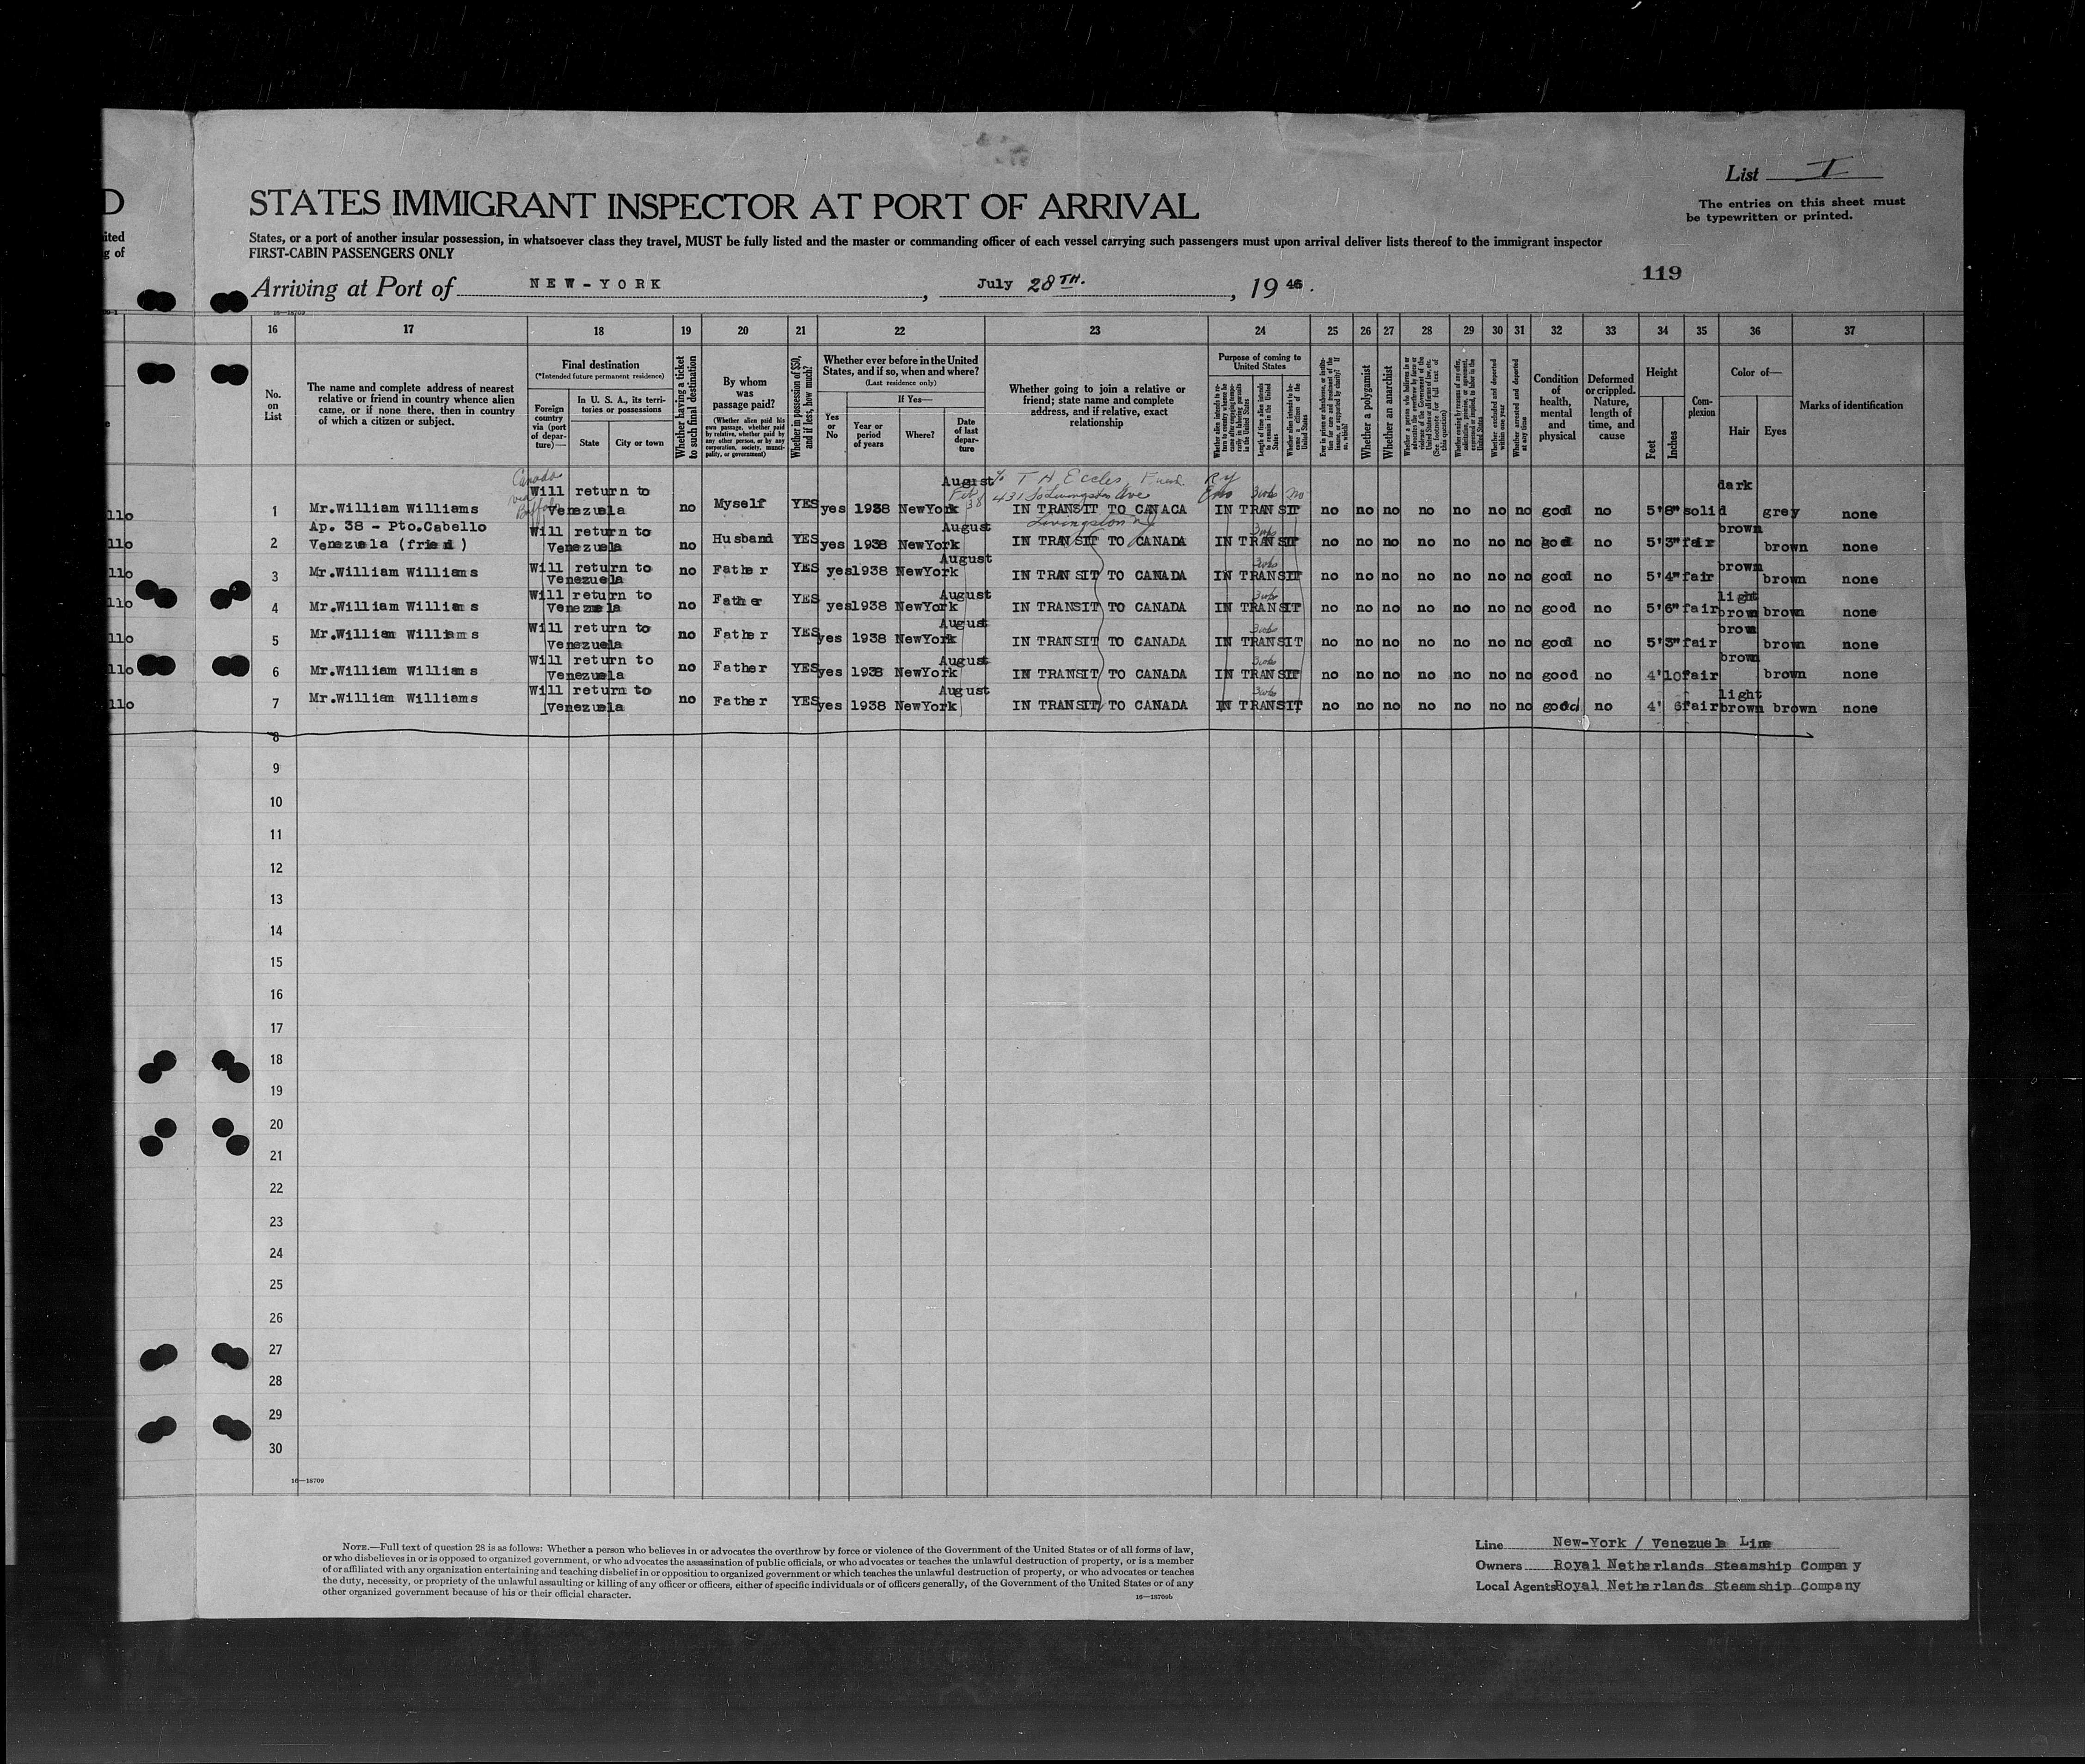 List I
The entries on this sheet must
be typewritten or printed.
D
STATES IMMIGRANT INSPECTOR AT PORT OF ARRIVAL
ited
g of
States, or a port of another insular possession, in whatsoever class they travel, MUST be fully listed and the master or commanding officer of each vessel carrying such passengers must upon arrival deliver lists thereof to the immigrant inspector
FIRST-CABIN PASSENGERS ONLY
119
Arriving at Port of NEW-YORK, July 28TH., 1946.
16—18709
16 17 18 19 20 21 22 23 24 25 26 27 28 29 30 31 32 33 34 35 36 37
No.
on
List
The name and complete address of nearest
relative or friend in country whence alien
came, or if none there, then in country
of which a citizen or subject.
Final destination
(*Intended future permanent residence)
Foreign
country
via (port
of depar-
ture)—
In U. S. A., its terri-
tories or possessions
State
City or town
Whether having a ticket
to such final destination
By whom
was
passage paid?
(Whether alien paid his
own passage, whether paid
by relative, whether paid by
any other person, or by any
corporation, society, munici-
pality, or government)
Whether in possession of $50,
and if less, how much?
Whether ever before in the United
States, and if so, when and where?
(Last residence only)
Yes
or
No
If Yes—
Year or
period
of years
Where?
Date
of last
depar-
ture
Whether going to join a relative or
friend; state name and complete
address, and if relative, exact
relationship
Purpose of coming to
United States
Whether a polygamist
Whether an anarchist
Whether arrested and deported
at any time
Condition
of
health,
mental
and
physical
Deformed
or crippled.
Nature,
length of
time, and
cause
Height
Feet
Inches
Com-
plexion
Color of—
Hair
Eyes
Marks of identification
Canada
via
T H Eccles, Friend
431 So Livingston Ave
Livingston NJ
llo 1 Mr.William Williams Will return to Venezuela no Myself YES yes 1938 NewYork August IN TRANSIT TO CANACA IN TRANSIT 3wks no no no no no no no no good no 5'8" solid dark grey none
Ap. 38 - Pto.Cabello
llo 2 Venezuela (friend) Will return to Venezuela no Husband YES yes 1938 NewYork August IN TRANSIT TO CANADA IN TRANSIT 3wks no no no no no no no good no 5'3" fair brown brown none
llo 3 Mr.William Williams Will return to Venezuela no Father YES yes 1938 NewYork August IN TRANSIT TO CANADA IN TRANSIT 3wks no no no no no no no good no 5'4" fair brown brown none
llo 4 Mr.William Williams Will return to Venezuela no Father YES yes 1938 NewYork August IN TRANSIT TO CANADA IN TRANSIT 3wks no no no no no no no good no 5'6" fair light brown brown none
llo 5 Mr.William Williams Will return to Venezuela no Father YES yes 1938 NewYork August IN TRANSIT TO CANADA IN TRANSIT 3wks no no no no no no no good no 5'3" fair brown brown none
llo 6 Mr.William Williams Will return to Venezuela no Father YES yes 1938 NewYork August IN TRANSIT TO CANADA IN TRANSIT 3wks no no no no no no no good no 4'10 fair brown brown none
llo 7 Mr.William Williams Will return to Venezuela no Father YES yes 1938 NewYork August IN TRANSIT TO CANADA IN TRANSIT 3wks no no no no no no no good no 4' 6 fair light brown brown none
8
9
10
11
12
13
14
15
16
17
18
19
20
21
22
23
24
25
26
27
28
29
30
16—18709
NOTE.—Full text of question 28 is as follows: Whether a person who believes in or advocates the overthrow by force or violence of the Government of the United States or of all forms of law,
or who disbelieves in or is opposed to organized government, or who advocates the assassination of public officials, or who advocates or teaches the unlawful destruction of property, or is a member
of or affiliated with any organization entertaining and teaching disbelief in or opposition to organized government or which teaches the unlawful destruction of property, or who advocates or teaches
the duty, necessity, or propriety of the unlawful assaulting or killing of any officer or officers, either of specific individuals or of officers generally, of the Government of the United States or of any
other organized government because of his or their official character.
16—18709b
Line New-York / Venezuela Line
Owners Royal Netherlands Steamship Company
Local Agents Royal Netherlands Steamship Company